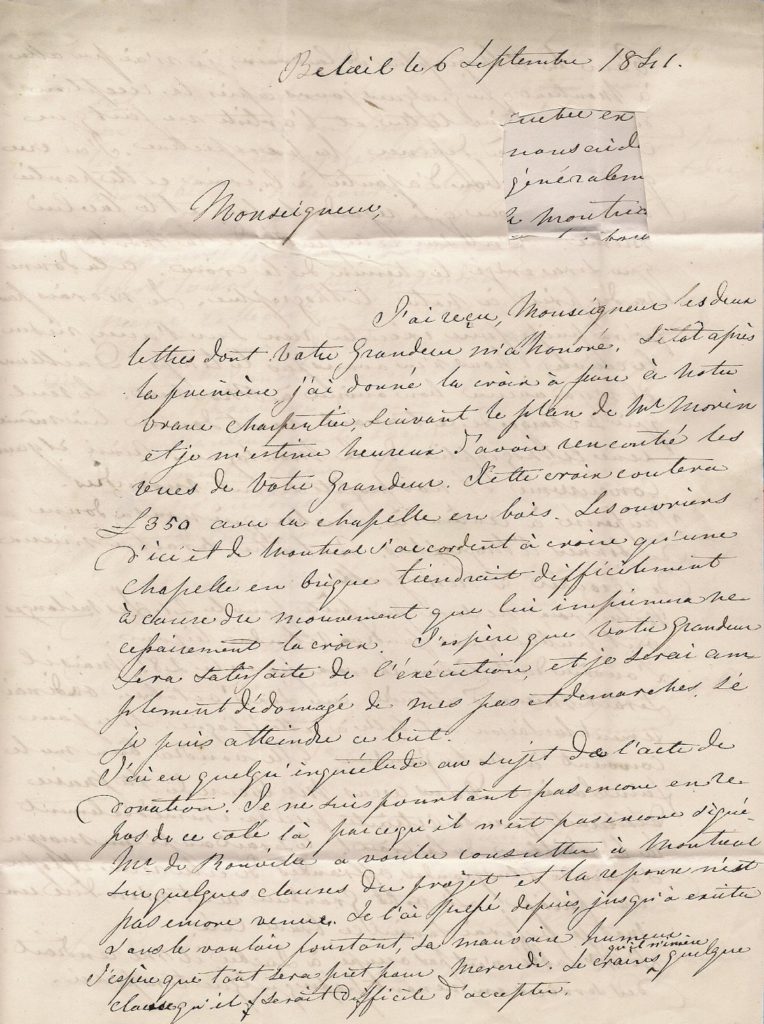 Belœil le 6 Septembre 1841.
généralem
à Montré
Monseigneur,
J'ai reçu, Monseigneur les deux
lettres dont Votre Grandeur m'a honoré. Sitôt après
la première j'ai donné la croix à faire à notre
brave charpentier, suivant le plan de Mr Morin
et je m'estime heureux d'avoir rencontré les
vues de Votre Grandeur. Cette croix coutera
£350 avec la chapelle en bois. Les ouvriers
d'ici et de Montreal s'accordent à croire qu'une
chapelle en brique tiendrait difficilement
à cause du mouvement que lui imprimera né-
cessairement la croix. J'espère que Votre Grandeur
sera satisfaite de l'exécution, et je serai am-
plement dédomagé de mes pas et demarches, si
je puis atteindre ce but.
J'ai eu quelqu'inquiétude au sujet de l'acte de
Donation. Je ne suis pourtant pas encore en re-
pos de ce coté là, parcequ'il n'est pas encore signé.
Mr de Rouville a voulu consulter à Montreal
sur quelques clauses du projet et la reponse n'est
pas encore venue. Je l'ai pressé depuis, jusqu'à exciter
sans le vouloir pourtant, sa mauvaise humeur
J'espère que tout sera prêt pour Mercredi. Je crains qu'il n'insère quelque
clause qu'il serait difficile d'accepter.